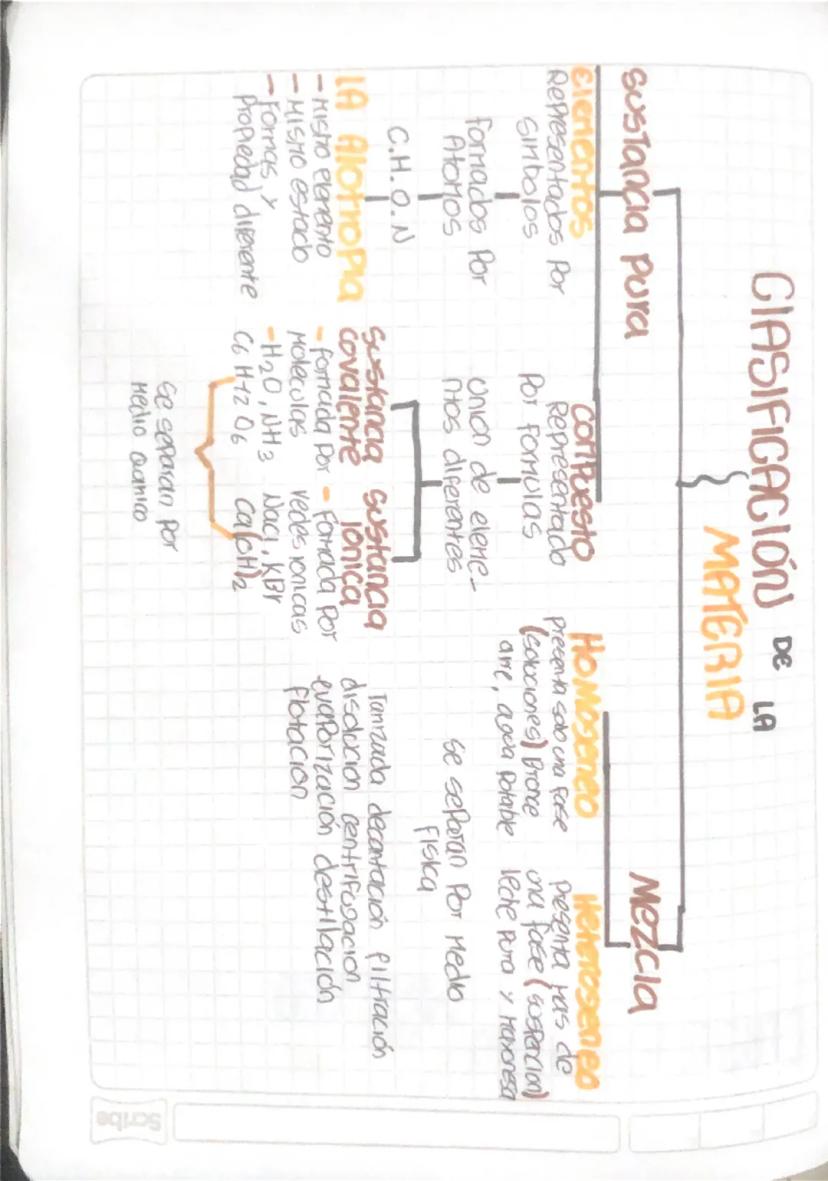 ClASIFICACIÓN DE LA
MATERIA
sustancia pura
Elementos
Representados Por
simbolos
Formados Por
Atomos
C.H.O.N
LA Alotropia
- Mismo elemento
- Mismo estado
- Formas y
Propiedad diferente
compuesto
Representado
Por formulas
union de eleme-
ntos diferentes
sustancia
covalente
- formada Por
Moleculas
- H2O, NH3
C6 H12 O6
sustancia
ionica
- Formada Por
redes ionicas
NaCl, KBr
Ca(OH)2
se separan por
Medio quimico
Mezcla
Homogeneo
presenta solo una fase
(soluciones) Bronce
aire, agua potable
Heterogeneo
Presenta mas de
una fase (suspencion)
leche pura y mayonesa
se separan Por Medio
Fisica
Tamizada decantación filtración
disolucion centrifugacion
evaporización destilación
flotacion
Scribe